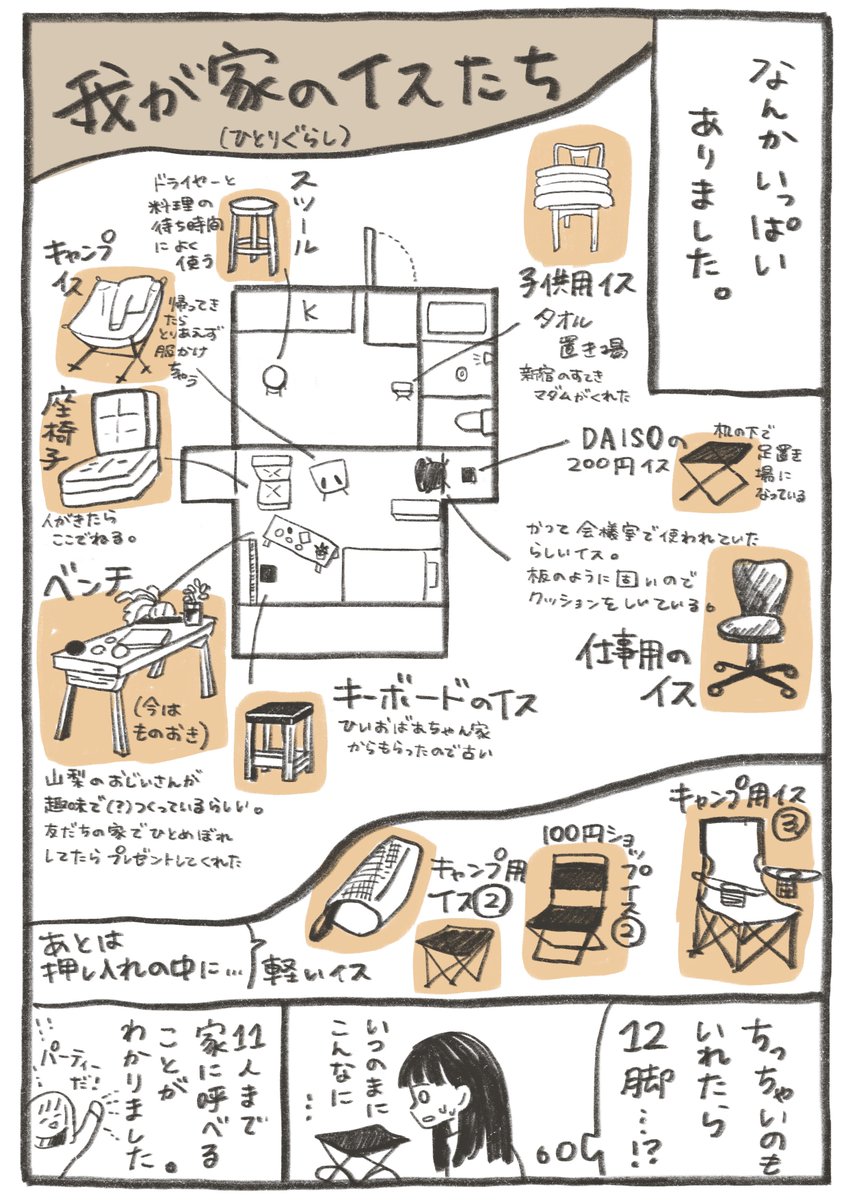 なんかいっぱい
ありました。
我が家のイスたち
(ひとりぐらし)
スツール
ドライヤーと
料理の
待ち時間
によく
使う
キャンプ
イス
帰ってき
たら
とりあえず
服かけ
ちゃう
子供用イス
タオル
置き場
新宿のすてき
マダムがくれた
K
座椅子
人がきたら
ここでねる。
DAISOの
200円イス
机の下で
足置き
場に
なっている
かつて会議室で使われていた
らしいイス。
板のように固いので
クッションをしいている。
仕事用の
イス
ベンチ
(今は
ものおき)
山梨のおじいさんが
趣味で(?)つくっているらしい。
友だちの家でひとめぼれ
してたらプレゼントしてくれた
キーボードのイス
ひいおばあちゃん家
からもらったので古い
キャンプ用イス
③
100円ショップイス②
キャンプ用
イス②
軽いイス
あとは
押し入れの中に…
ちっちゃいのも
いれたら
12脚…!?
いつのまに
こんなに
…
11人まで
家に呼べる
ことが
わかりました。
パーティー
だ!